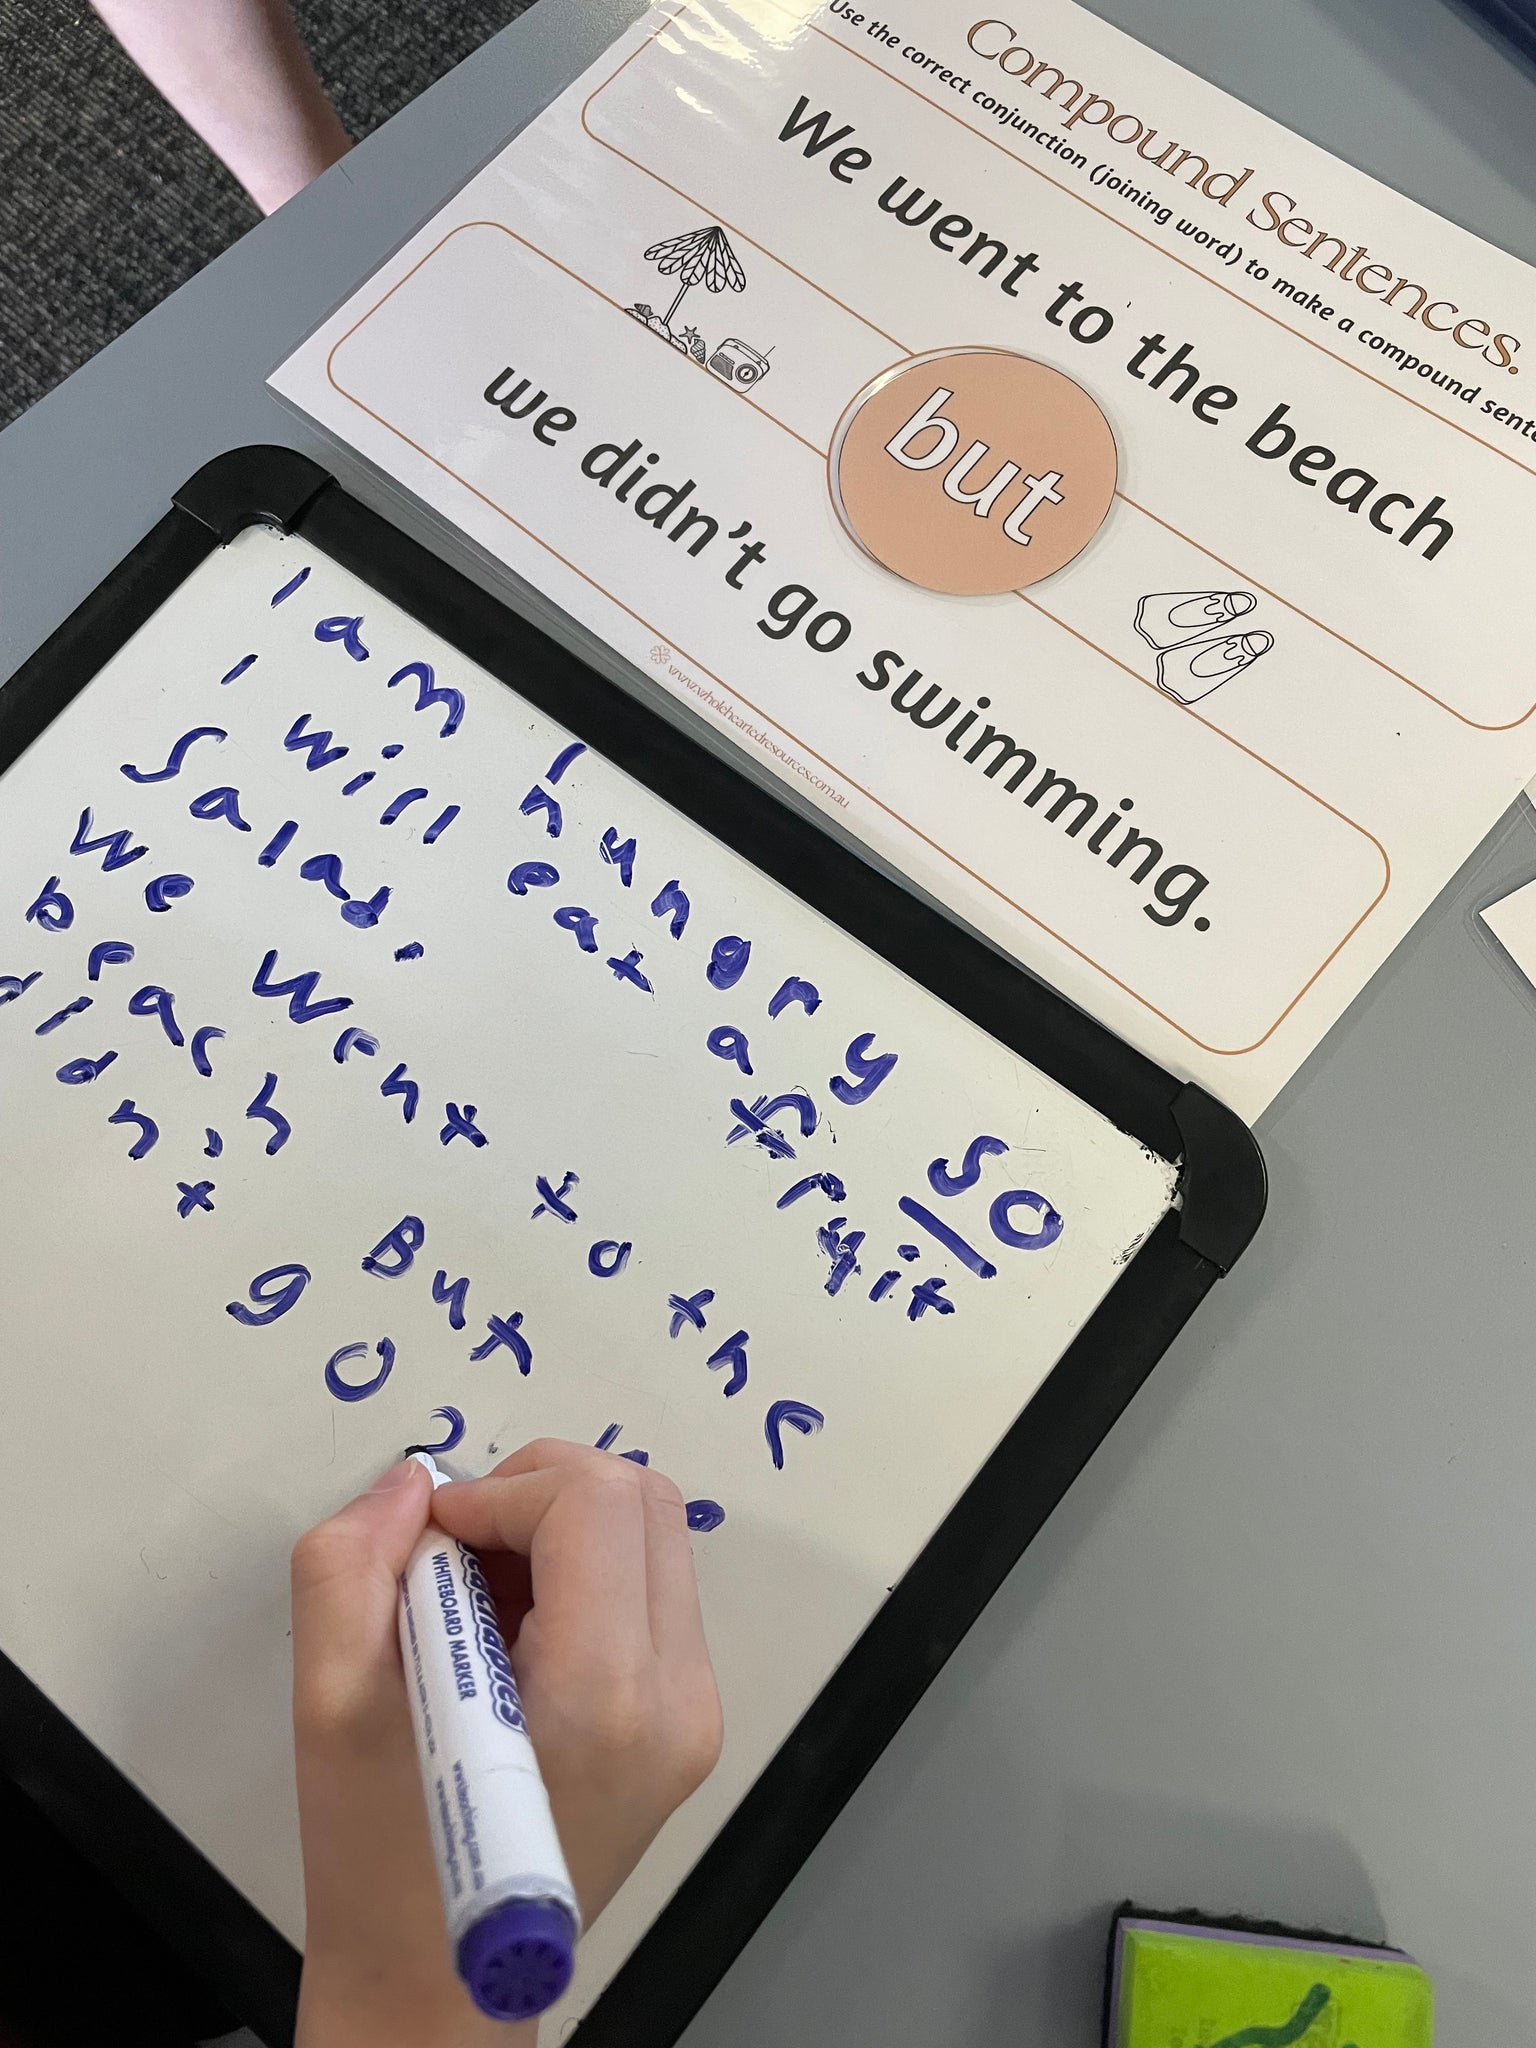 Compound Sentences.
Use the correct conjunction (joining word) to make a compound sent
We went to the beach
but
we didn't go swimming.
www.wholeheartedresources.com.au
I am hungry so
I will eat a fruit
salad.
We went to the
beach But we
didn't go
WHITEBOARD MARKER